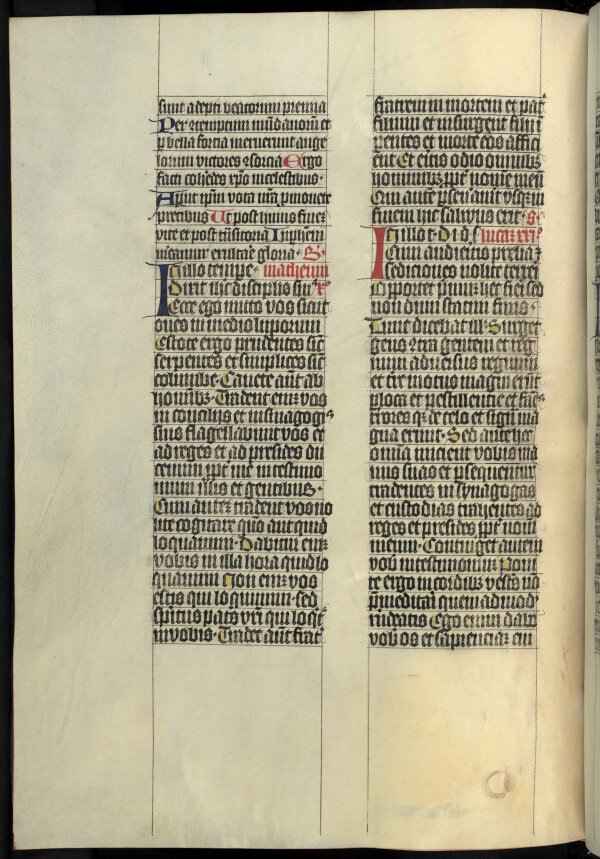 sunt adepti beatorum premia
Per contemptum mūdanorū et
p bella fortia meruerunt ange
lorum victores consorcia Ergo
facti coheredes xpo in celestibus
Apud ipm vota nra pmouete
precibus Ut post huius finez
vite et post transitoria
mereamur exultare gloria
In illo tempe matheum
Dixit ihc disciplis suis x
Ecce ego mitto vos sicut
oues in medio luporum
Estote ergo prudentes sic
serpentes et simplices sic
columbe Cauete aūt ab
hominibz Tradent enim vos
in concilijs et in sinagogis
suis flagellabunt vos et
ad reges et ad presides du
cemini ppt me in testimo
nium illis et gentibus
Cum autez tradent vos no
lite cogitare quo aut quid
loquamini Dabitur enim
vobis in illa hora quid lo
quamini Non enim vos
estis qui loquimini sed
spiritus patris vri qui loqt
in vobis Tradet aūt frat
fratrem in mortem et pat
filium et insurgent filij i
parentes et morte eos affici
ent Et eritis odio omnibz
hominibz ppt nomen meū
Qui autē pseuaut vsqz in
finem hic saluus erit s
In illo t d i d s luce xxi
Cum audieritis prelia et
sediciones nolite terreri
Oportet primū hec fieri sed
nondum statim finis
Tunc dicebat ill Surget
gens contra gentem et reg
num aduersus regnum
et terre motus magni erūt
p loca et pestilentie et fames
trores qz de celo et signa ma
gna erunt Sed ante hec
omnia inicient vobis ma
nus suas et psequentur
tradentes in synagogas
et custodias trahentes ad
reges et presides ppt nom
meum Continget autem
vob in testimonium Poni
te ergo in cordibz vestris nō
pmeditari quem admod
rndeatis Ego enim dabo
vob os et sapienciaz cui